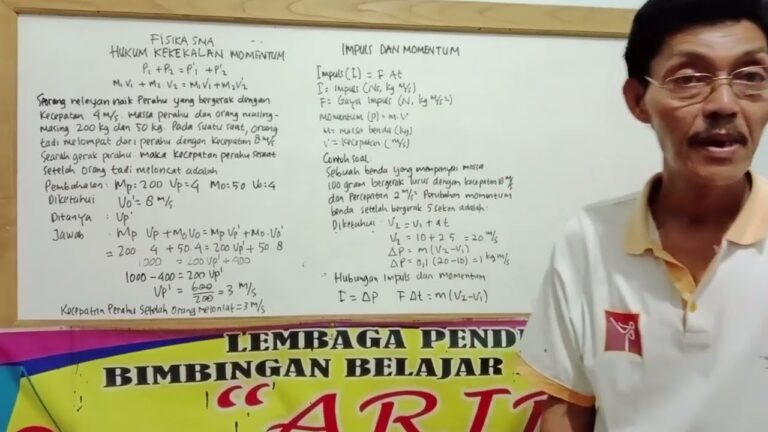 FISIKA SMA
HUKUM KEKEKALAN MOMENTUM
P1 + P2 = P'1 + P'2
M1V1 + M2.V2 = M1V1' + M2V2'
Seorang nelayan naik Perahu yang bergerak dengan
Kecepatan 4 m/s. Massa perahu dan orang masing-
masing 200 kg dan 50 kg. Pada suatu saat, orang
tadi melompat dari perahu dengan Kecepatan 8 m/s
Searah gerak perahu. maka Kecepatan perahu sesaat
setelah orang tadi meloncat adalah
Pembahasan : Mp = 200 Vp = 4 Mo = 50 Vo = 4
Diketahui Vo' = 8 m/s
Ditanya : Vp'
Jawab : Mp Vp + Mo Vo = Mp Vp' + Mo. Vo'
= 200 4 + 50.4 = 200 Vp' + 50 8
1000 = 200 Vp' + 400
1000 - 400 = 200 Vp'
Vp' = 600/200 = 3 m/s
Kecepatan Perahu Setelah Orang meloncat = 3 m/s
IMPULS DAN MOMENTUM
Impuls (I) = F Δt
I = Impuls (Ns, kg m/s)
F = Gaya Impuls (N, kg m/s2)
MOMENTUM (P) = m.V
M = massa benda (kg)
V = Kecepatan (m/s)
Contoh soal
Sebuah benda yang mempunyai massa
100 gram bergerak lurus dengan kecepatan 10 m/s
dan Percepatan 2 m/s2. Perubahan momentum
benda setelah bergerak 5 sekon adalah.
Diketahui : V2 = V1 + at
V2 = 10 + 2 5 = 20 m/s
ΔP = m (V2 - V1)
ΔP = 0,1 (20 - 10) = 1 kg m/s
Hubungan Impuls dan momentum
I = ΔP F Δt = m (V2 - V1)
LEMBAGA
BIMBINGAN BELAJAR